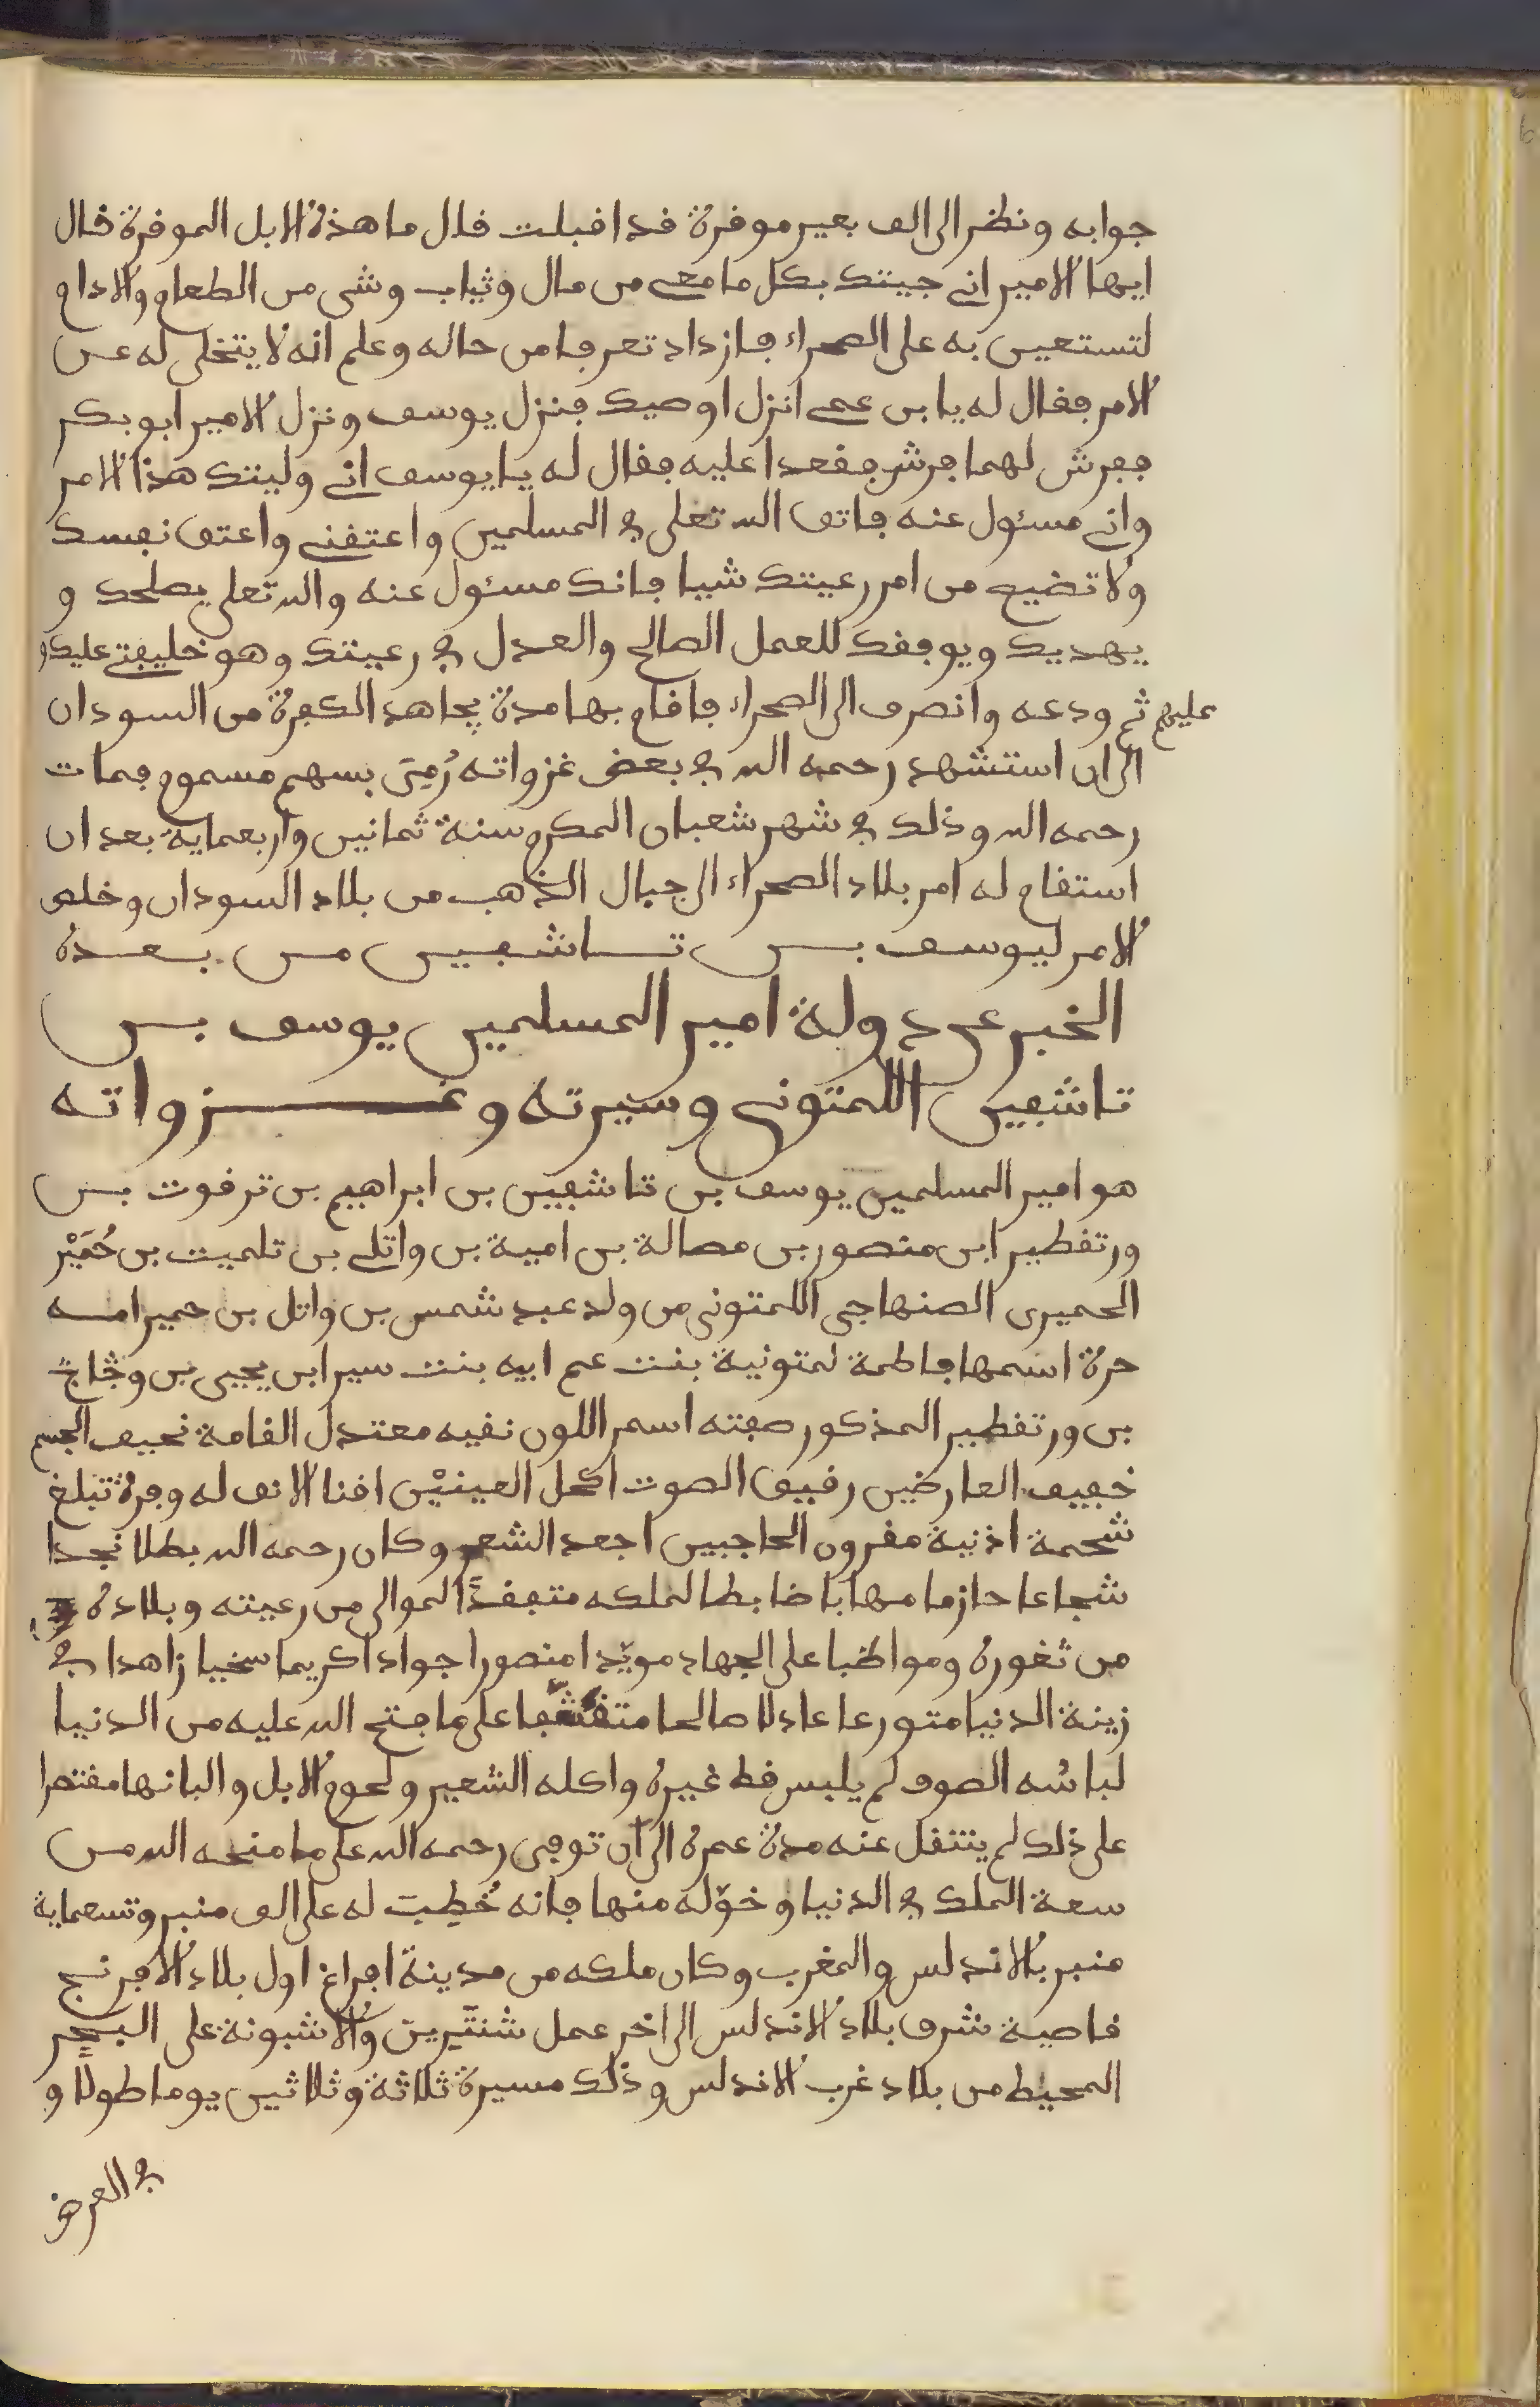 جوابه ونظر الى الف بعير موقرة قد اقبلت قال ما هذه الابل الموقرة قال
ايها الامير اني جيتك بكل ما معي من مال وثياب وشي من الطعام والادام
لتستعين به على الصحراء فازداد تعرفا من حاله وعلم انه لا يتخلى له عن
الامر فقال له يا بن عمي انزل اوصيك فنزل يوسف ونزل الامير ابو بكر
ففرش لهما فرش فقعدا عليه فقال له يا يوسف اني وليتك هذا الامر
واني مسئول عنه فاتق الله تعلى في المسلمين واعتقني واعتق نفسك
ولا تضيع من امر رعيتك شيا فانك مسئول عنه والله تعلى يصلحك و
يهديك ويوفقك للعمل الصالح والعدل في رعيتك وهو خليفتي عليك و
عليهم ثم ودعه وانصرف الى الصحراء فاقام بها مدة يجاهد الكفرة من السودان
الى ان استشهد رحمه الله في بعض غزواته رُمِيَ بسهم مسموم فمات
رحمه الله وذلك في شهر شعبان المكرم سنة ثمانين واربعماية بعد ان
استقام له امر بلاد الصحراء الى جبال الذهب من بلاد السودان وخلص
الامر ليوسف بن تاشفين من بعده
الخبر عن دولة امير المسلمين يوسف بن
تاشفين اللمتوني وسيرته وغزواته
هو امير المسلمين يوسف بن تاشفين بن ابراهيم بن ترقوت بن
ورتقطير ابن منصور بن مصالة بن امية بن واتلي بن تلميت بن حُمَيْر
الحميرى الصنهاجي اللمتونى من ولد عبد شمس بن واتل بن حمير امه
حرة اسمها فاطمة لمتونية بنت عم ابيه بنت سير ابن يحيى بن وجّاج
بن ورتقطير المذكور صفته اسمر اللون نقيه معتدل القامة نحيف الجسم
خفيف العارضين رقيق الصوت اكحل العينيْن اقنا الانف له وفرة تبلغ
شحمة اذنية مقرون الحاجبين اجعد الشعر وكان رحمه الله بطلا نجدا
شجاعا حازما مهابا ضابطا لملكه متفقدًا الموالى من رعيته وبلاده
من ثغوره ومواظبا على الجهاد مويّدا منصورا جوادا كريما سخيا زاهدا في
زينة الدنيا متورعا عادلا صالحا متقشّفا على ما فتح الله عليه من الدنيا
لباسُه الصوف لم يلبس قط غيره واكله الشعير ولحوم الابل والبانها مقتصرا
على ذلك لم ينتقل عنه مدة عمره الى ان توفى رحمه الله على ما منحه الله من
سعة الملك في الدنيا وخوّله منها فانه خُطِبَ له على الف منبر وتسعماية
منبر بالاندلس والمغرب وكان ملكه من مدينة افراغ اول بلاد الافرنج
قاصية شرق بلاد الاندلس الى اخر عمل شنتَرين والاشبونة على البحر
المحيط من بلاد غرب الاندلس وذلك مسيرة ثلاثة وثلاثين يوما طولا و
في العرض